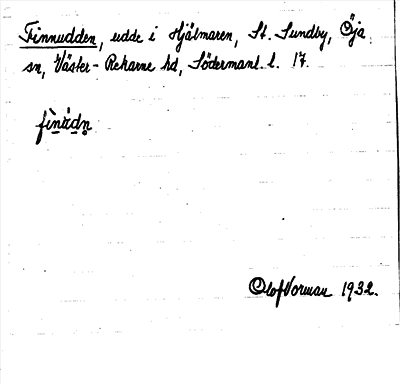 Finnudden, udde i Hjälmaren, St. Sundby, Öja
sn, Väster-Rekarne hd, Södermanl. l. 17.
fìnúdn̥
Olof Vorman 1932.